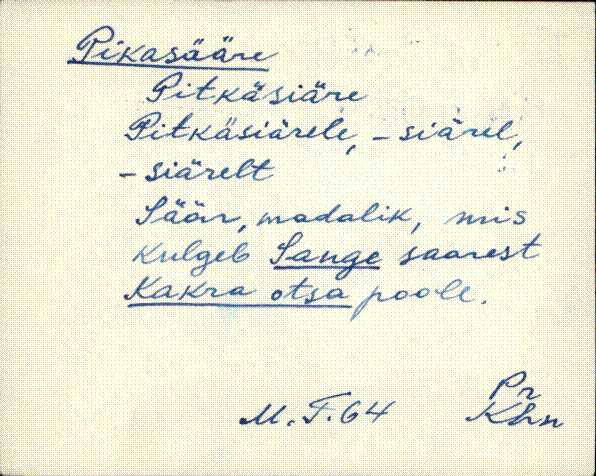 Pikasääre
Pitkäsiäre
Pitkäsiärele, -siärel,
-siärelt
Säär, madalik, mis
kulgeb Sange saarest
Kakra otsa poole.
Pr
M. F. 64 Khn